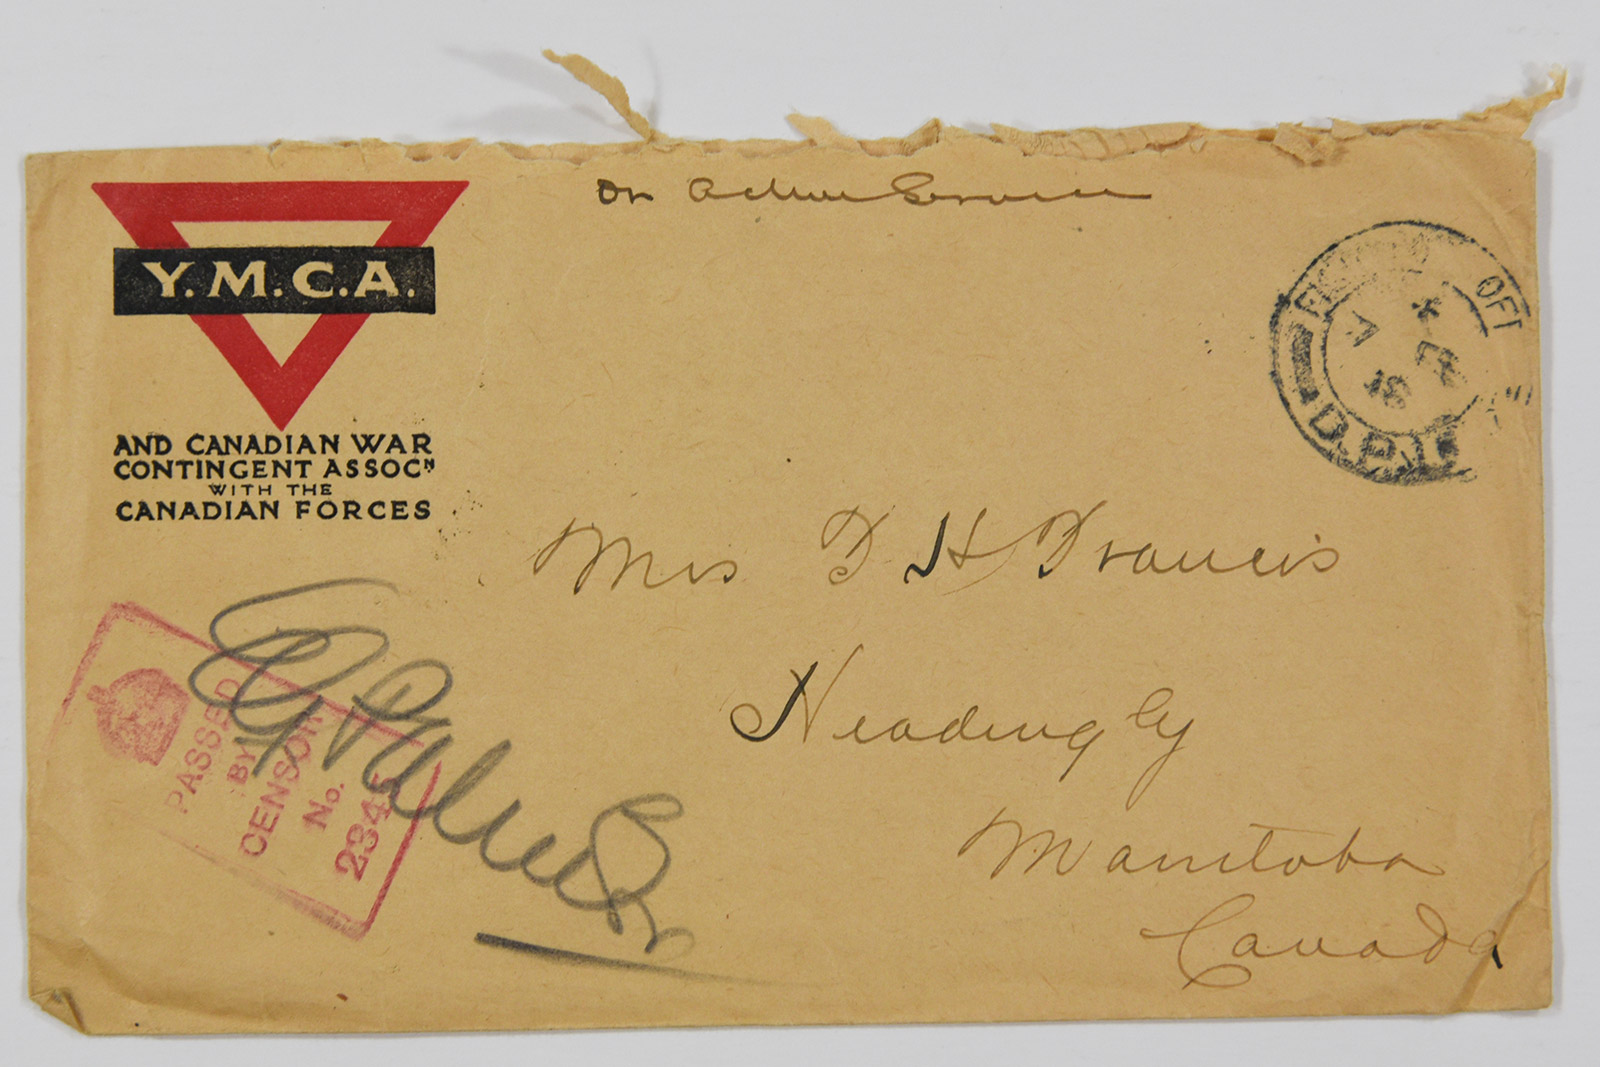 On Active Service
Y.M.C.A.
AND CANADIAN WAR
CONTINGENT ASSOCN
WITH THE
CANADIAN FORCES
FIELD POST OFF
D.P.1
Mrs D H Francis
Headingly
Manitoba
Canada
PASSED
BY
CENSOR
No.
2345